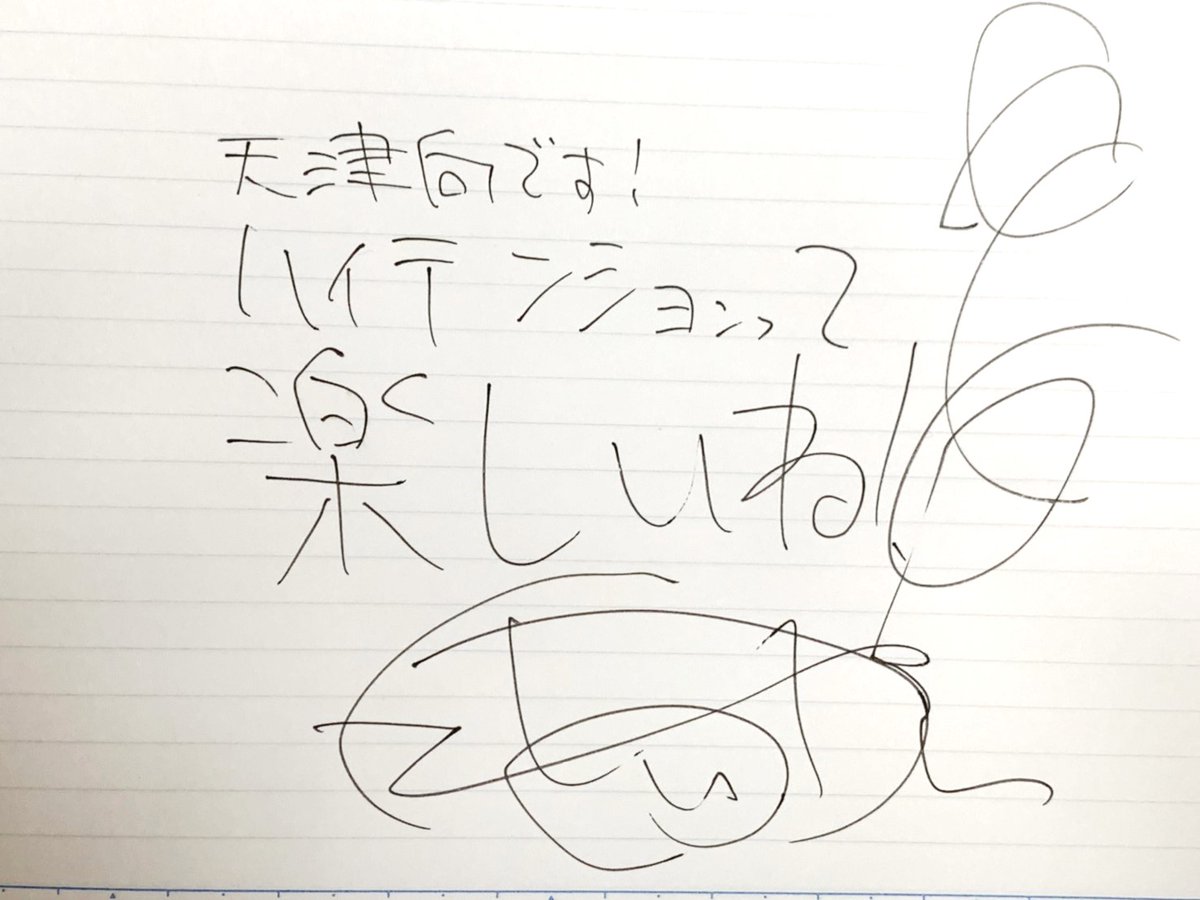 天津向です!
ハイテンションって
楽しいね!